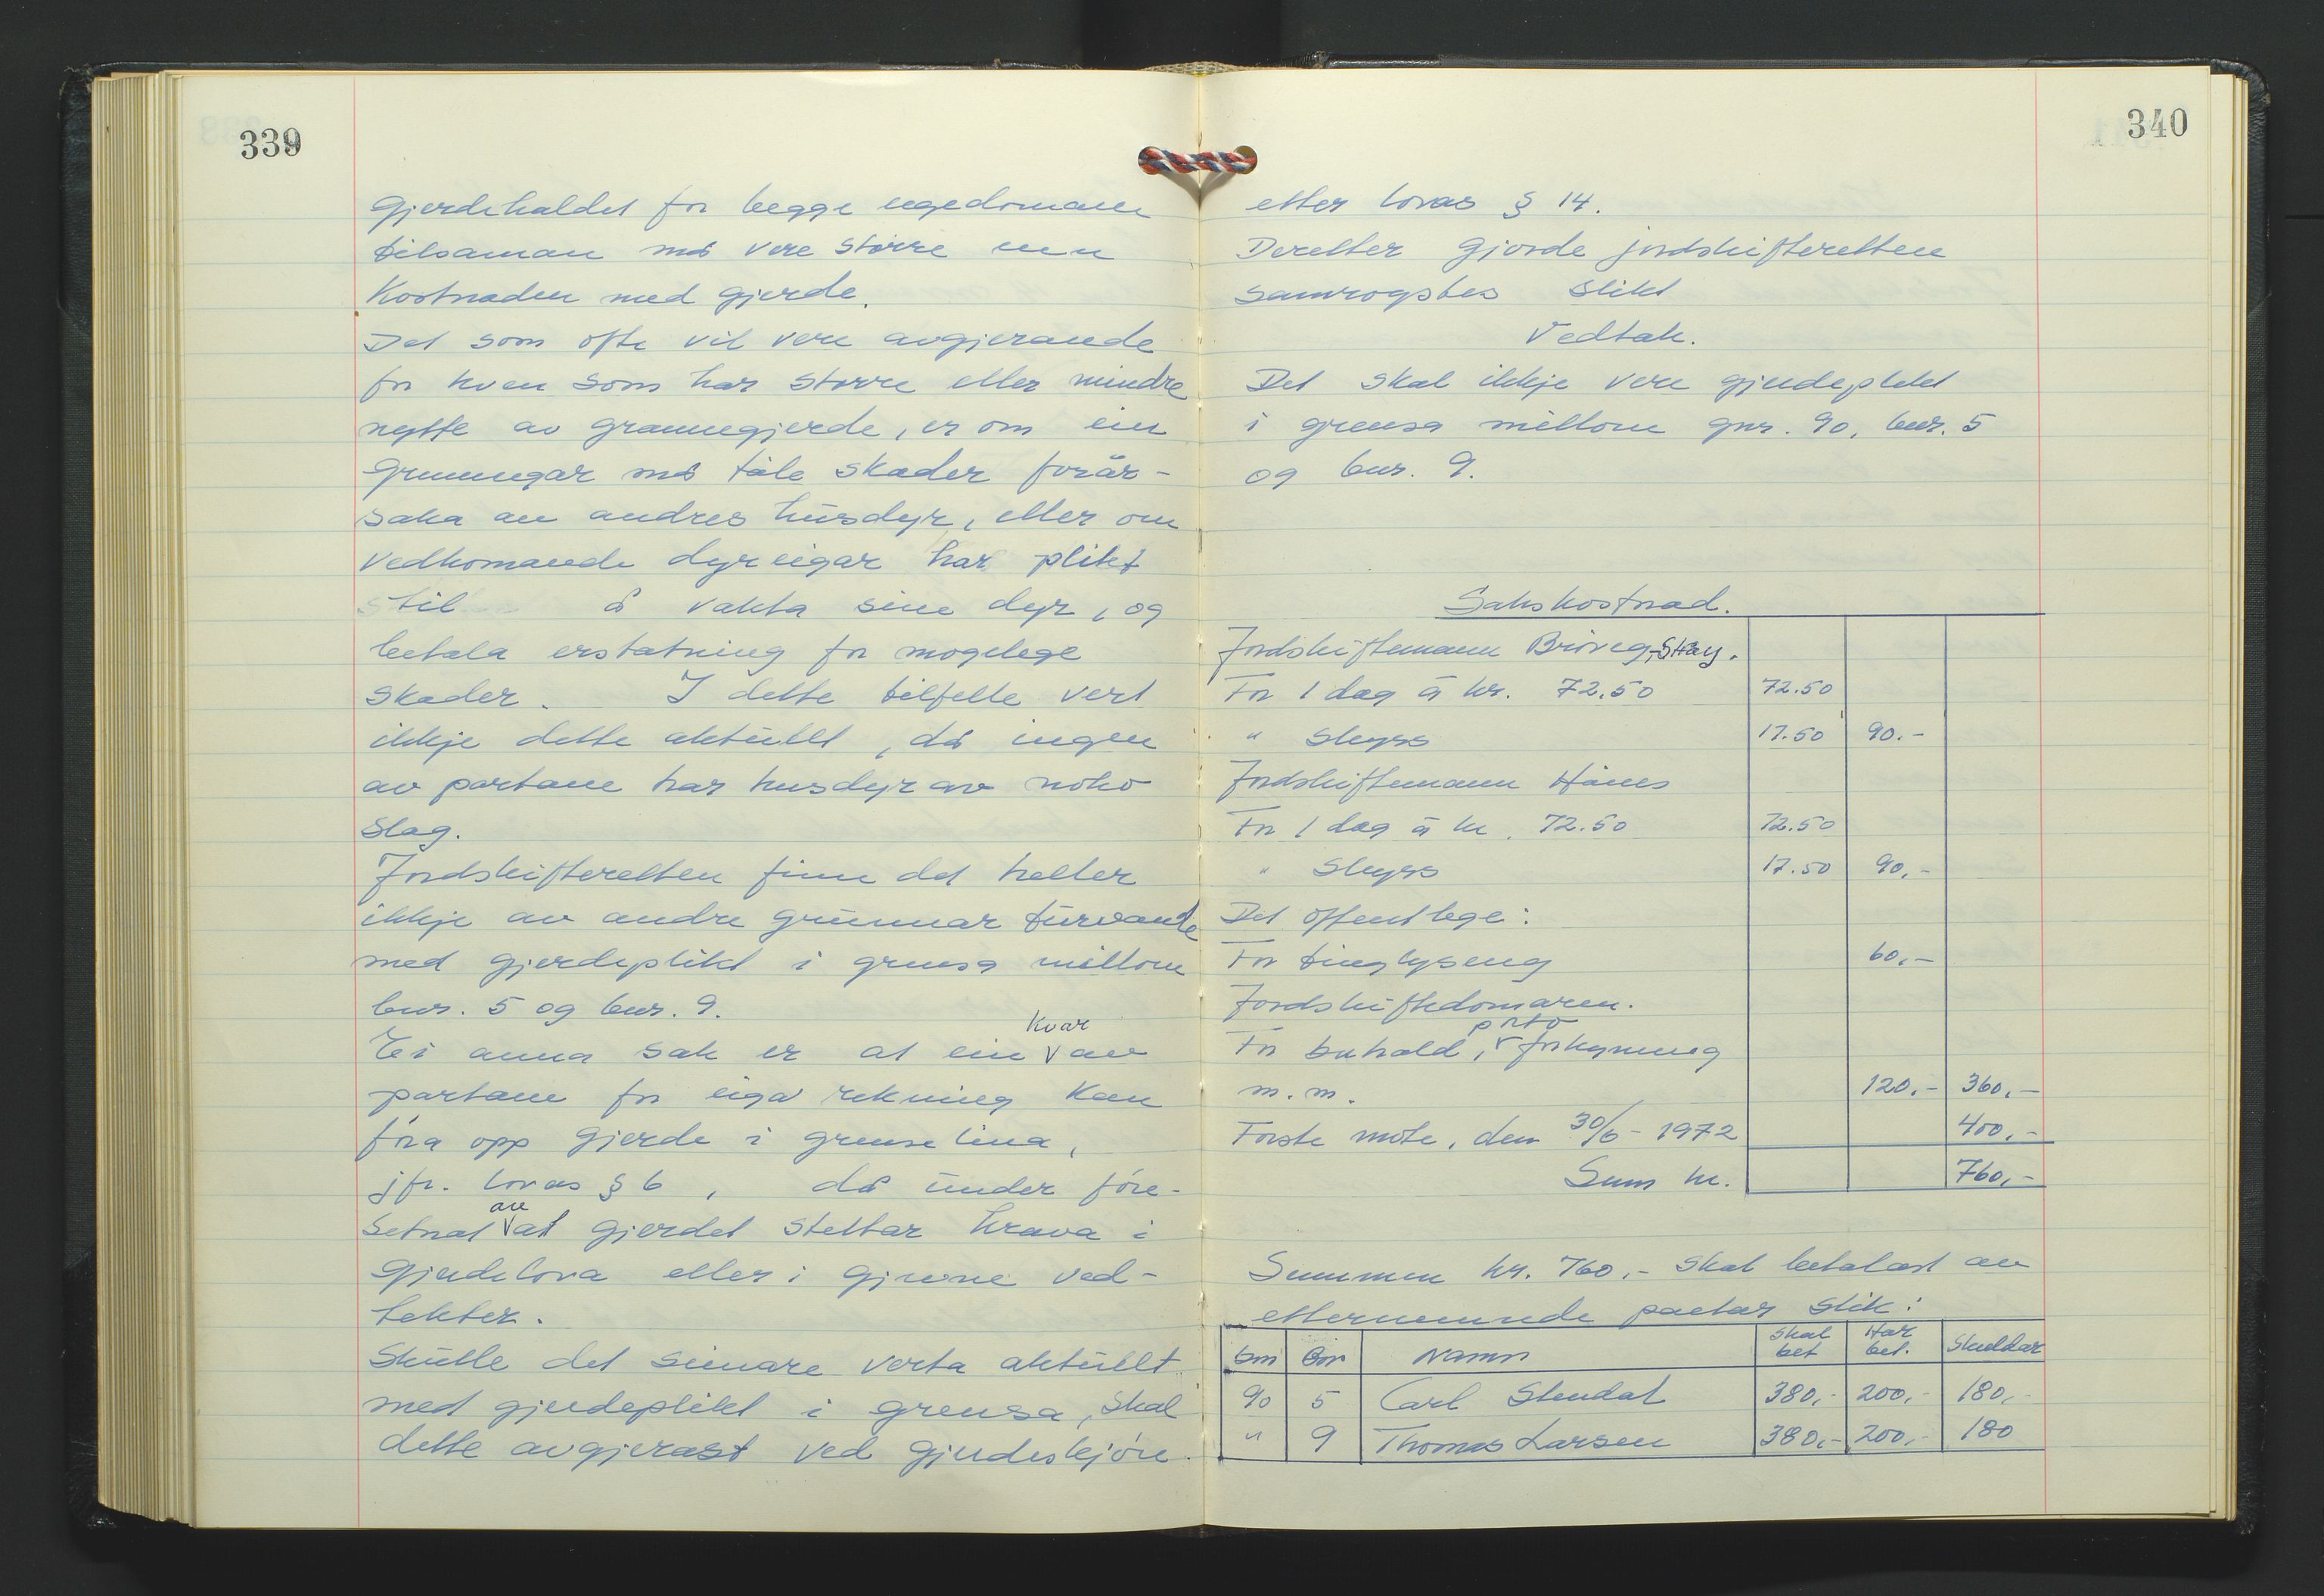 339
gjerdehaldet for begge eigedomane
tilsaman må vere større enn
kostnaden med gjerde.
Det som ofte vil vere avgjerande
for kven som har større eller mindre
nytte av grannegjerde, er om ein
grunneigar må tåle skader forår-
saka av andres husdyr, eller om
vedkomande dyreigar har plikt
til å vakta sine dyr, og
betala erstatning for mogelege
skader. I dette tilfelle vert
ikkje dette aktuellt, då ingen
av partane har husdyr av noko
slag.
Jordskifteretten finn det heller
ikkje av andre grunnar turvande
med gjerdeplikt i grensa millom
bnr. 5 og bnr. 9.
Ei anna sak er at ein kvar av
partane for eiga rekning kan
föra opp gjerde i grenselina,
jfr. lovas § 6, då under føre-
setnad av at gjerdet stettar krava i
gjerdelova eller i gjevne ved-
tekter.
Skulle det seinare verta aktuellt
med gjerdeplikt i grensa, skal
dette avgjerast ved gjerdeskjøn
340
etter lovas § 14.
Deretter gjorde jordskifteretten
samrøystes slikt
Vedtak.
Det skal ikkje vere gjerdeplikt
i grensa millom gnr. 90, bnr. 5
og bnr. 9.
Sakskostnad.
Jordskiftemann Brøveg,
For 1 dag à kr. 72.50 72.50
" Skyss 17.50 90.-
Jordskiftemann Hånes
For 1 dag à kr. 72.50 72.50
" Skyss 17.50 90,-
Det offentlege:
For tinglysing 60,-
Jordskiftedomaren.
For buhald, porto forkynning
m.m. 120,- 360,-
Første møte, den 30/6-1972 400,-
Sum kr. 760,-
Summen kr. 760,- skal betalast av
etternemnde partar slik:
Gnr Bnr Namn Skal bet Har bet. Skuldar
90 5 Carl Stendal 380,- 200,- 180,-
" 9 Thomas Larsen 380,- 200,- 180